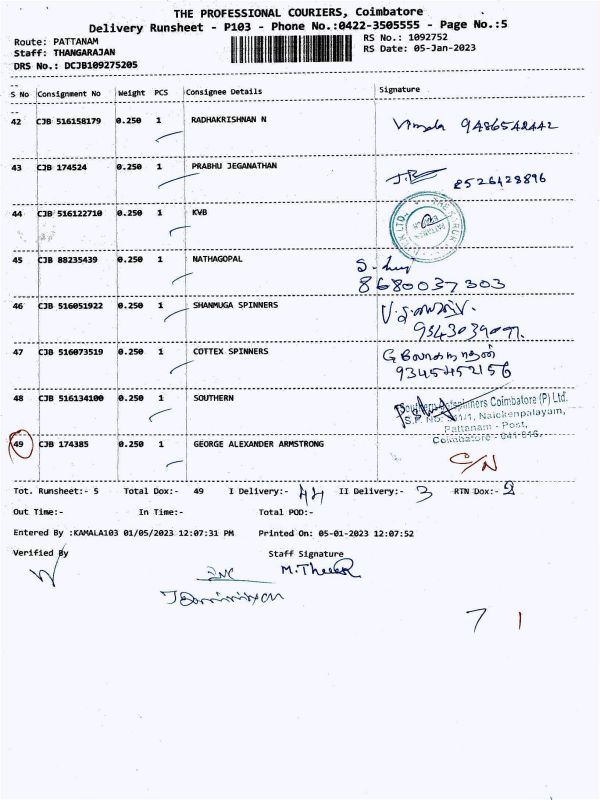 THE PROFESSIONAL COURIERS, Coimbatore
Delivery Runsheet - P103 - Phone No.:0422-3505555 - Page No.:5
Route: PATTANAM
RS No.: 1092752
Staff: THANGARAJAN
RS Date: 05-Jan-2023
DRS No.: DCJB109275205
S No Consignment No Weight PCS Consignee Details Signature
42 CJB 516158179 0.250 1 RADHAKRISHNAN N
Vimala 9486542442
43 CJB 174524 0.250 1 PRABHU JEGANATHAN
8526428896
44 CJB 516122710 0.250 1 KVB
45 CJB 88235439 0.250 1 NATHAGOPAL
8680037303
46 CJB 516051922 0.250 1 SHANMUGA SPINNERS
47 CJB 516073519 0.250 1 COTTEX SPINNERS
9345452156
48 CJB 516134100 0.250 1 SOUTHERN
Coimbatore (P) Ltd.
S.F. No. Naickenpalayam,
Pattanam - Post,
Coimbatore - 641 016.
49 CJB 174385 0.250 1 GEORGE ALEXANDER ARMSTRONG
C/N
Tot. Runsheet:- 5 Total Dox:- 49 I Delivery:- 44 II Delivery:- 3 RTN Dox:- 2
Out Time:- In Time:- Total POD:-
Entered By :KAMALA103 01/05/2023 12:07:31 PM Printed On: 05-01-2023 12:07:52
Verified By Staff Signature
7 1